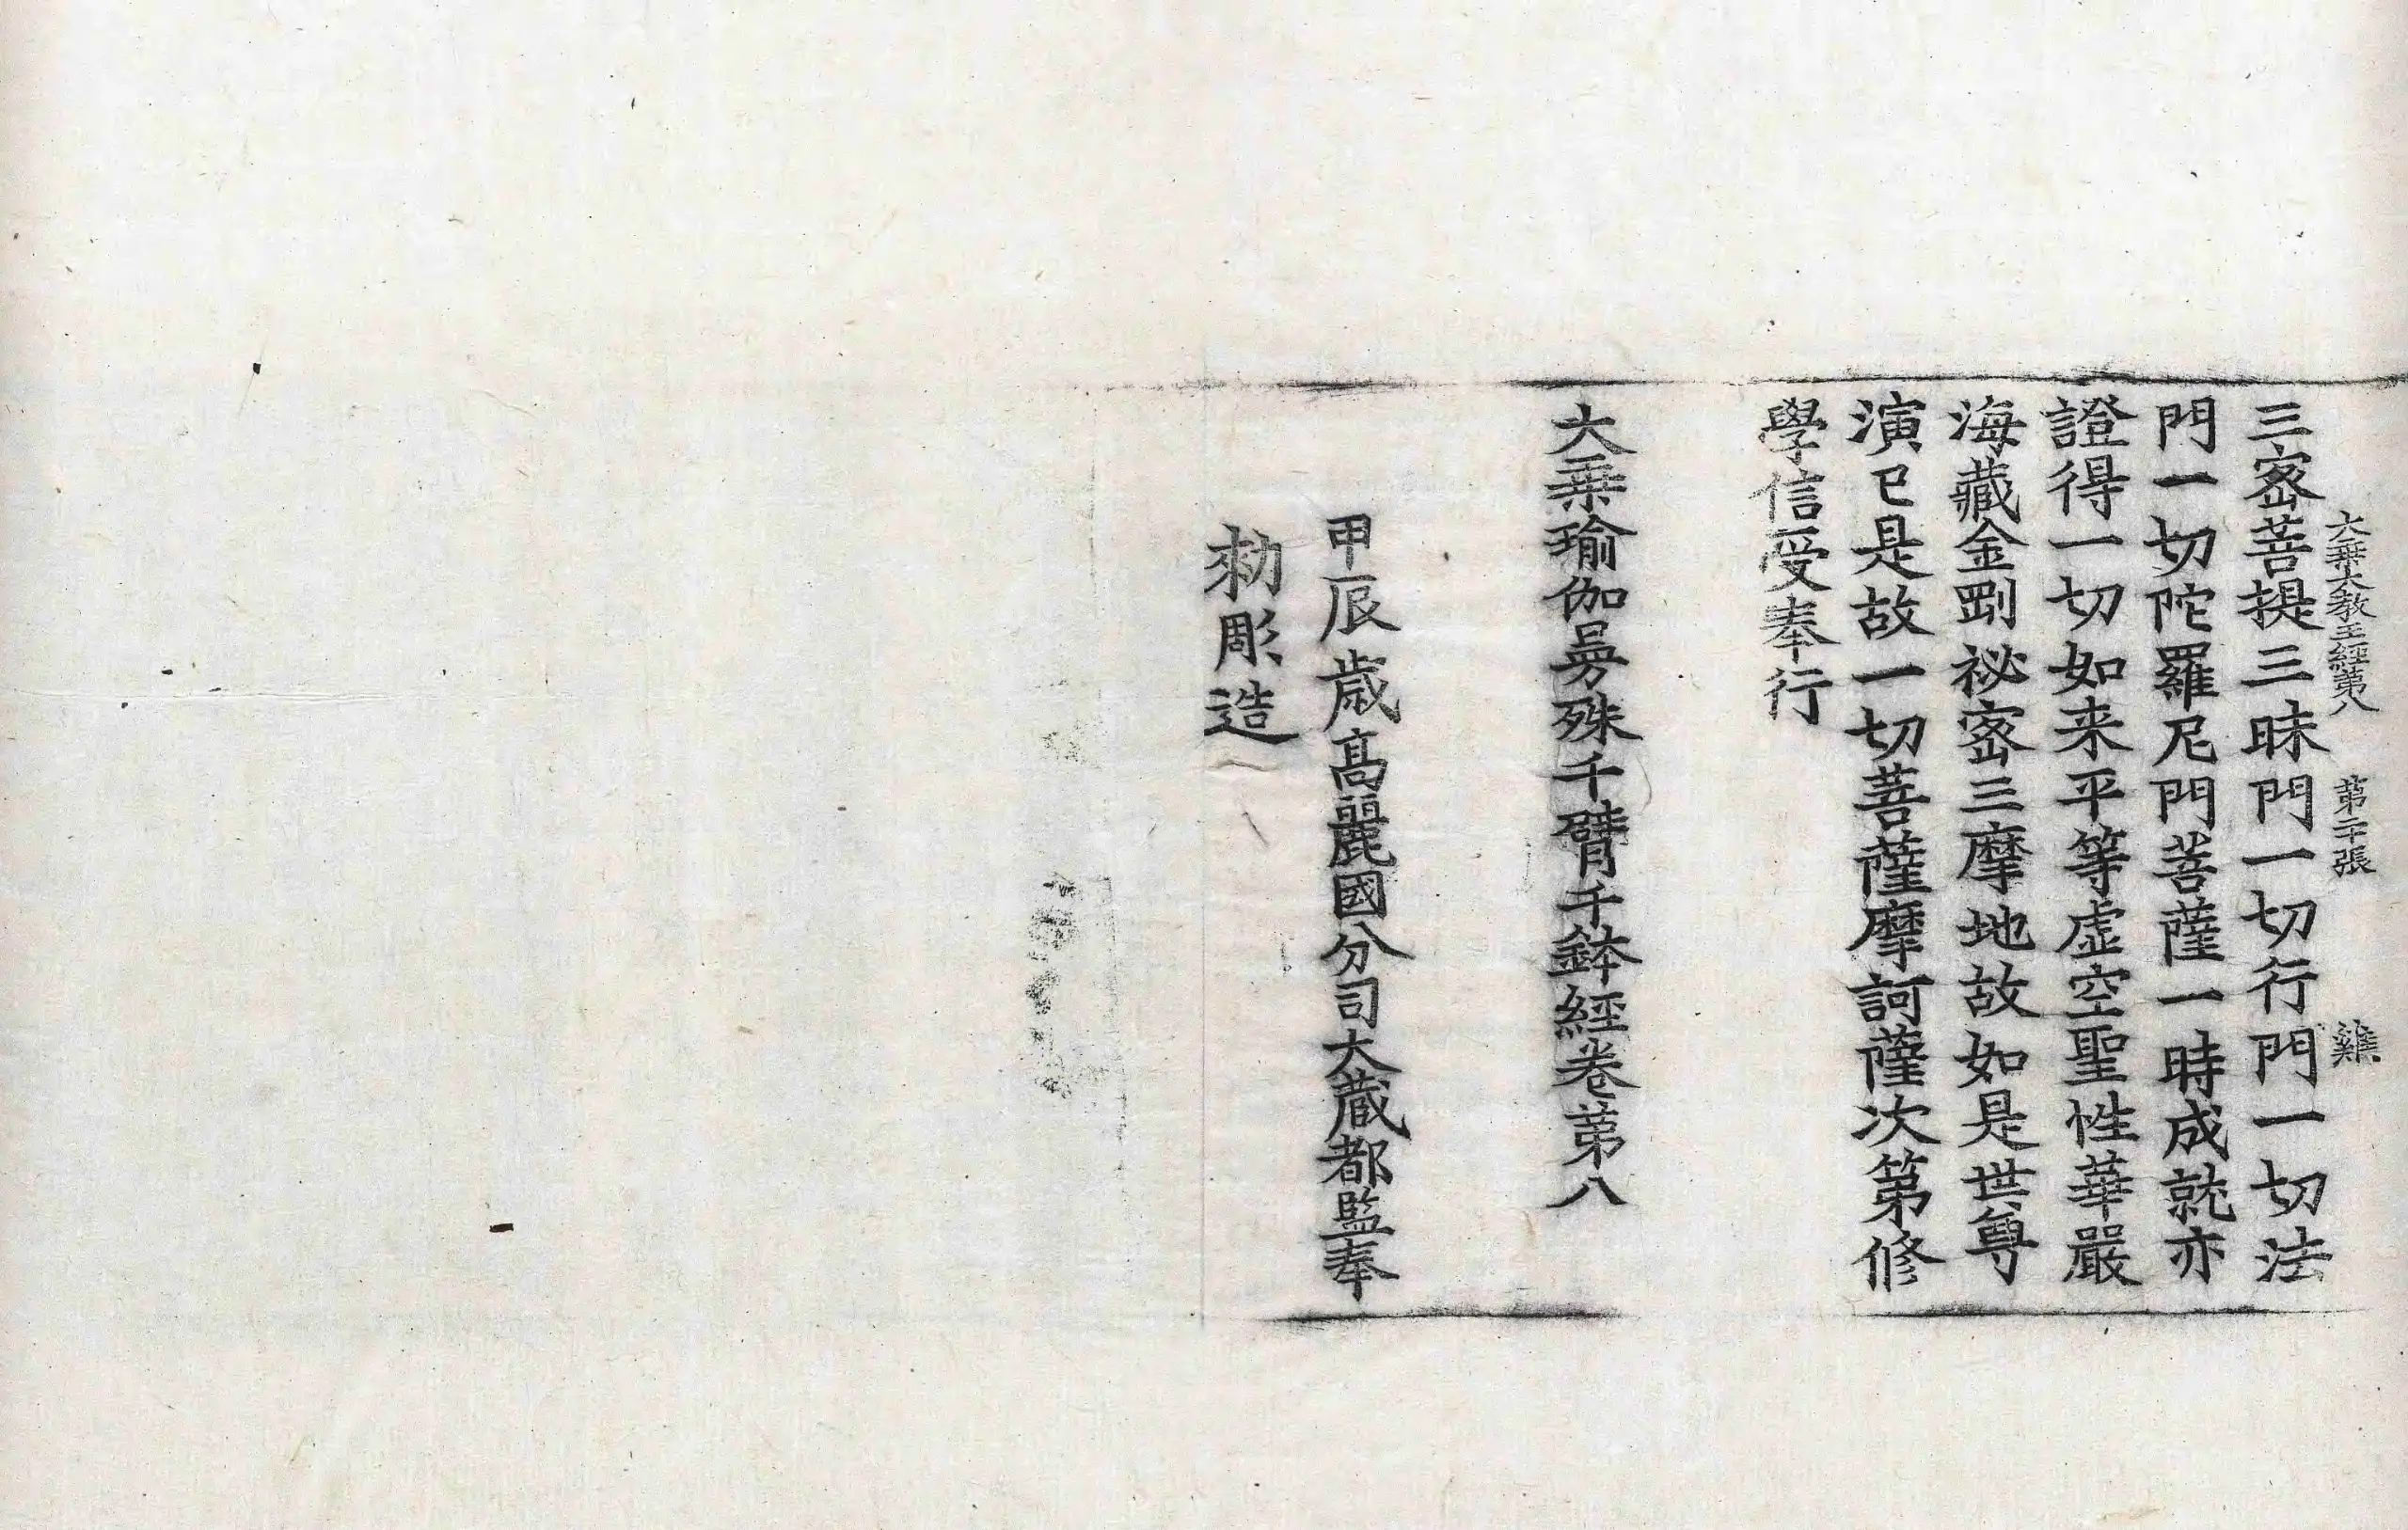 大乗大教王經第八 第二十張 雞
三密菩提三昧門一切行門一切法
門一切陀羅尼門菩薩一時成就亦
證得一切如来平等虛空聖性華嚴
海藏金剛祕密三摩地故如是世尊
演已是故一切菩薩摩訶薩次第修
學信受奉行
大乗瑜伽曼殊千臂千鉢經卷第八
甲辰歲高麗國分司大藏都監奉
勑彫造